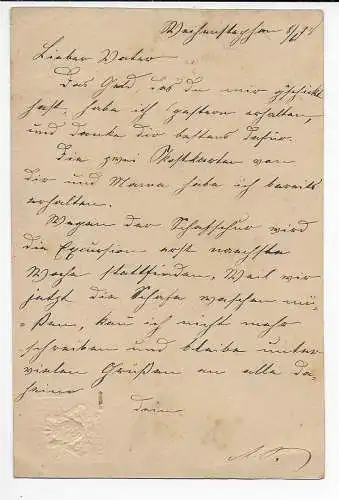 Weihenstephan
Lieber Vater
Das Geld, das du mir geschickt
hast, habe ich gestern erhalten,
und danke dir bestens dafür.
Die zwei Postkarten von
dir und Mama habe ich bereits
erhalten.
Wegen der Schafschur wird
die Excursion erst naechste
Woche stattfinden. Weil wir
jetzt die Schafe waschen mü-
ßen, kan ich nicht mehr
schreiben und bleibe unter
vielen Grüßen an alle da-
heime
dein